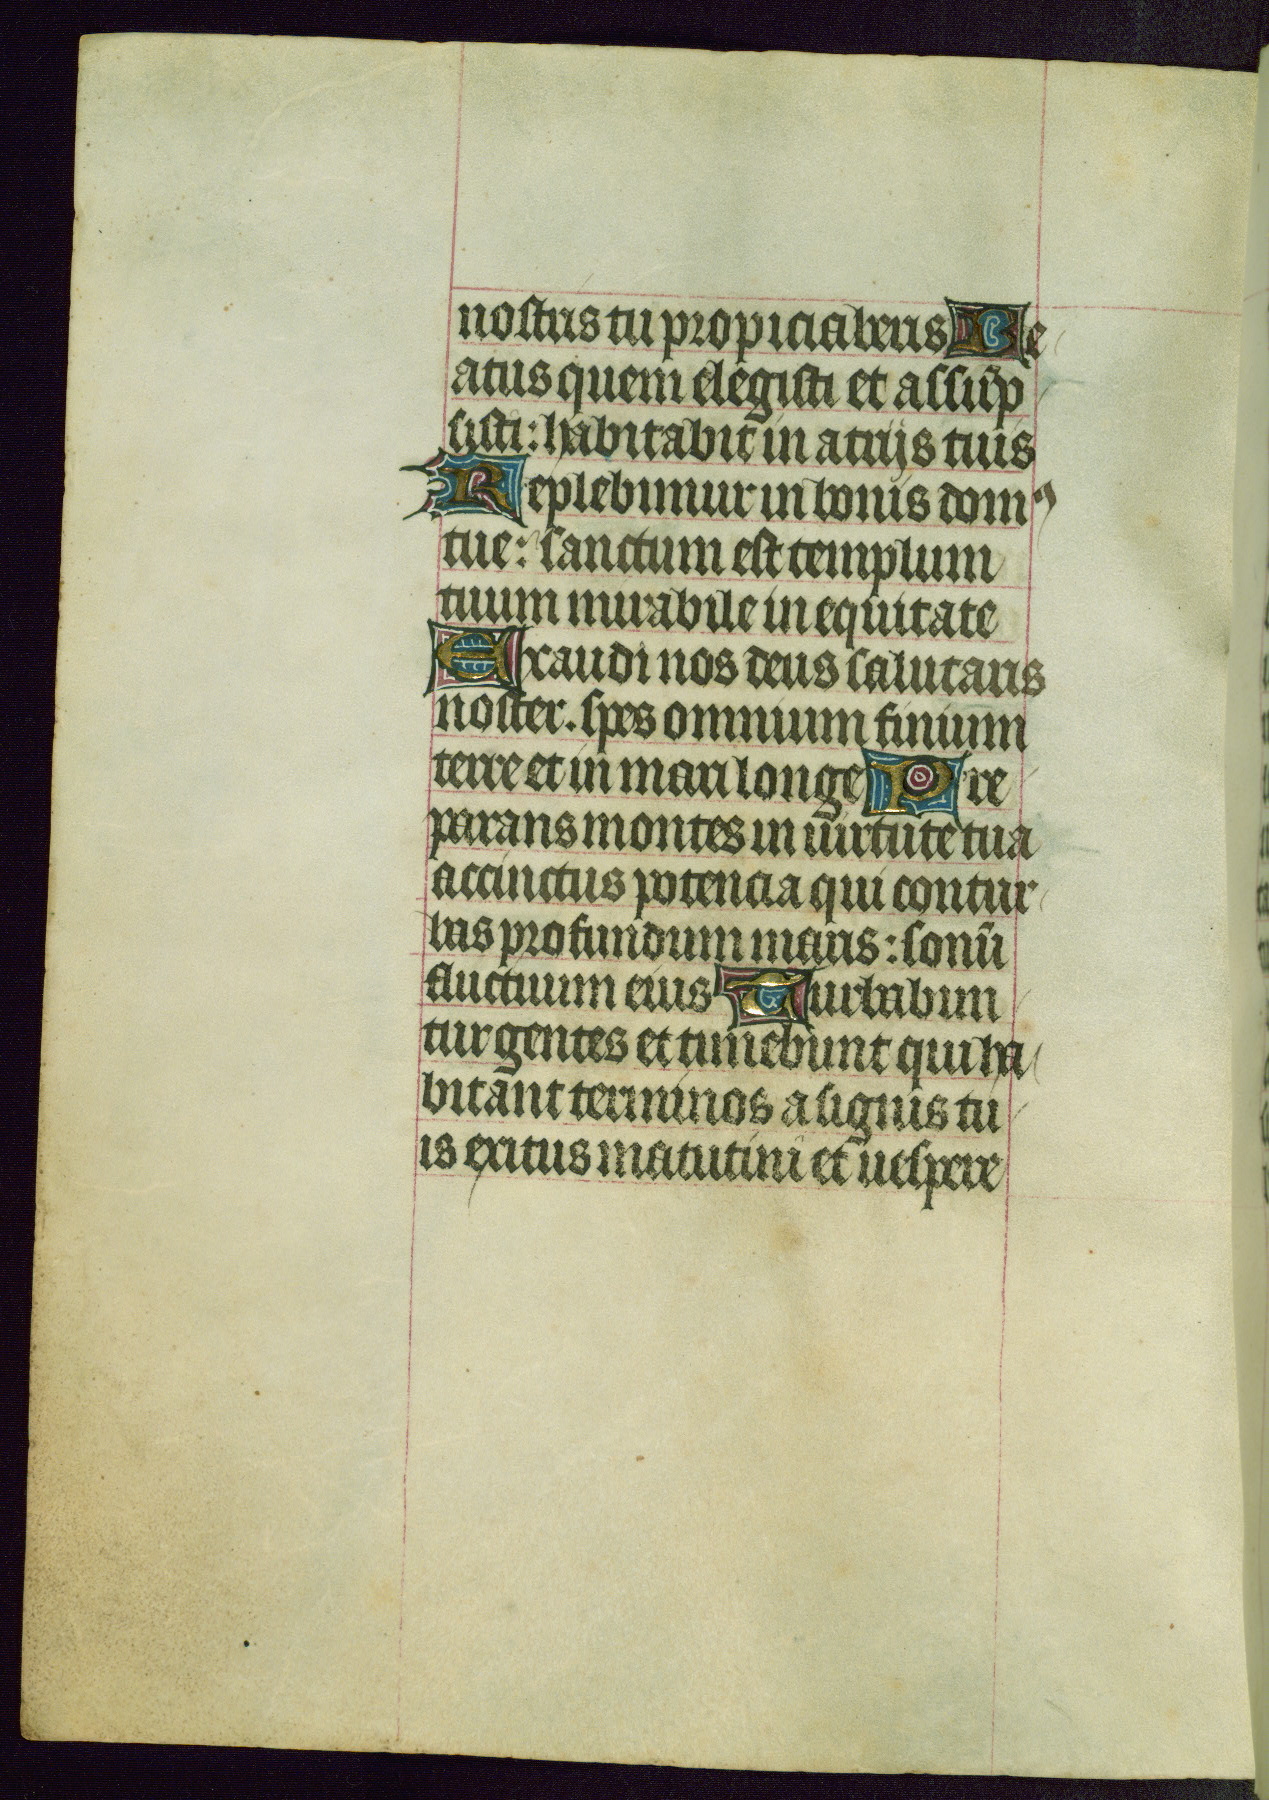 nostris tu propiciaberis Be
atus quem elegisti et assūp
sisti: habitabit in atrijs tuis
Replebimur in bonis domꝰ
tue: sanctum est templum
tuum mirabile in equitate
Exaudi nos deus salutaris
noster. spes omnium finium
terre et in mari longe Pre
parans montes in uirtute tua
accinctus potencia qui contur
bas profundum maris: sonū
fluctuum eius Turbabun
tur gentes et timebunt qui ha
bitant terminos a signis tu
is exitus matutini et uespere